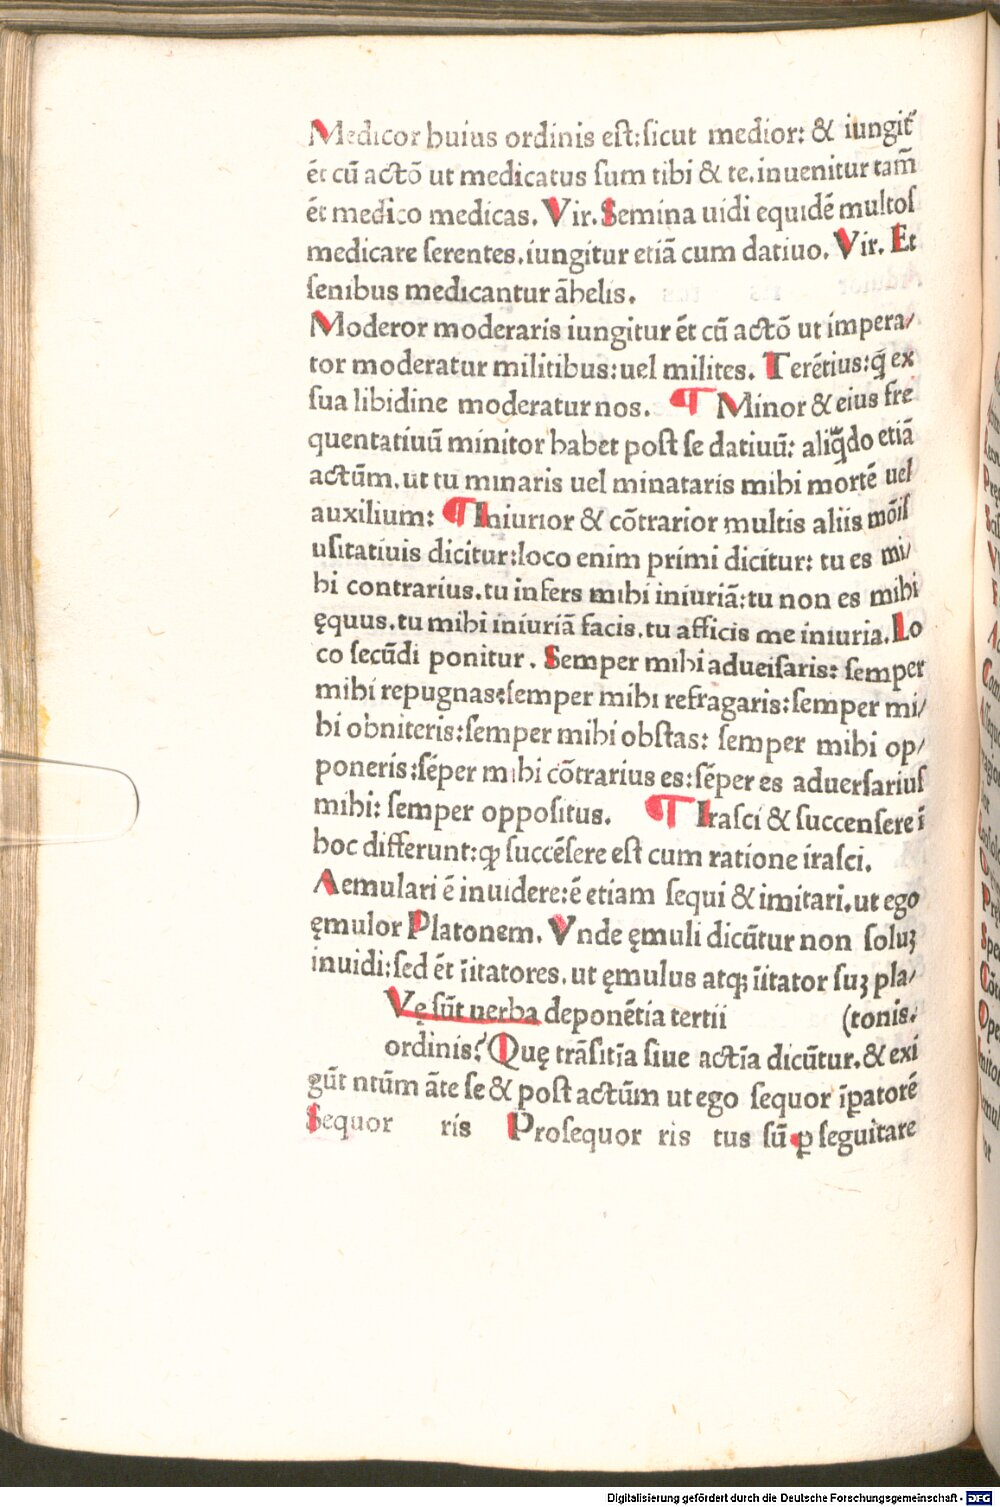 Medicor huius ordinis est:sicut medior: & iungit᷑
ēt cū actō ut medicatus sum tibi & te.inuenitur tam̄
ēt medico medicas. Vir. Semina uidi equidē multos
medicare serentes.iungitur etiā cum datiuo. Vir. Et
senibus medicantur āhelis.
Moderor moderaris iungitur ēt cū actō ut impera/
tor moderatur militibus:uel milites. Terētius:q̄ ex
sua libidine moderatur nos. ¶ Minor & eius fre
quentatiuū minitor habet post se datiuū: aliq̄do etiā
actūm.ut tu minaris uel minataris mihi mortē uel
auxilium: ¶ Iniurior & cōtrarior multis aliis mōis
usitatiuis dicitur:loco enim primi dicitur: tu es mi/
hi contrarius.tu infers mihi iniuriā:tu non es mihi
ęquus.tu mihi iniuriā facis.tu afficis me iniuria.Lo
co secūdi ponitur. Semper mihi adueisaris: semper
mihi repugnas:semper mihi refragaris:semper mi/
hi obniteris:semper mihi obstas: semper mihi op/
poneris:sēper mihi cōtrarius es:sēper es aduersarius
mihi: semper oppositus. ¶ Irasci & succensere ī
hoc differunt:ꝙ succēsere est cum ratione irasci.
Aemulari ē inuidere:ē etiam sequi & imitari.ut ego
ęmulor Platonem. Vnde ęmuli dicūtur non soluꝫ
inuidi:sed ēt īitatores.ut ęmulus atqꝫ īitator suꝫ pla/
Vę sūt uerba deponētia tertii (tonis.
ordinis? Quę trāsitīa siue actīa dicūtur.& exi
gūt ntūm āte se & post actūm ut ego sequor īꝑatorē
Sequor ris Prosequor ris tus sū ꝑ seguitare
Digitalisierung gefördert durch die Deutsche Forschungsgemeinschaft - DFG